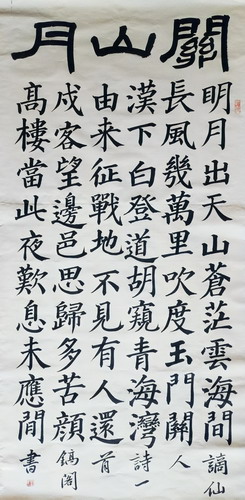 關山月
明月出天山蒼茫雲海間謫仙
長風幾萬里吹度玉門關人
漢下白登道胡窺青海灣詩一
由来征戰地不見有人還首
戍客望邊邑思歸多苦顔
髙樓當此夜歎息未應間書